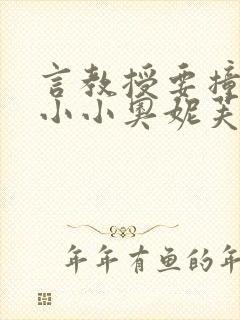 言教授要撞
小小奥妮芙
年年有鱼的年